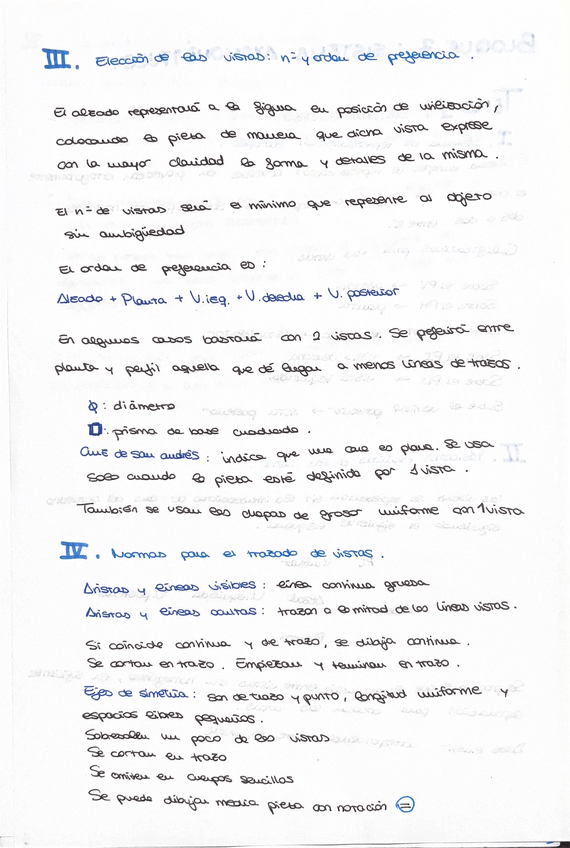 III. Elección de las vistas: nº y orden de preferencia.
El alzado representará a la figura en posición de utilización,
colocando la pieza de manera que dicha vista exprese
con la mayor claridad la forma y detalles de la misma.
El nº de vistas será el mínimo que represente al objeto
sin ambigüedad
El orden de preferencia es:
Alzado + Planta + V. izq. + V. derecha + V. posterior
En algunos casos bastará con 2 vistas. Se preferirá entre
planta y perfil aquella que dé lugar a menos líneas de trazos.
ϕ: diámetro
□: prisma de base cuadrado.
Cruz de san andrés: indica que una cara es plana. Se usa
solo cuando la pieza esté definida por 1 vista.
También se usan las chapas de grosor uniforme con 1 vista
IV. Normas para el trazado de vistas.
Aristas y líneas visibles: línea continua gruesa
Aristas y líneas ocultas: trazon a la mitad de las líneas vistas.
Si coincide continua y de trazo, se dibuja continua.
Se cortan en trazo. Empiezan y terminan en trazo.
Ejes de simetría: son de trazo y punto, longitud uniforme y
espacios libres pequeños.
Sobresalen un poco de las vistas
Se cortan en trazo
Se omiten en cuerpos sencillos
Se puede dibujar media pieza con notación =